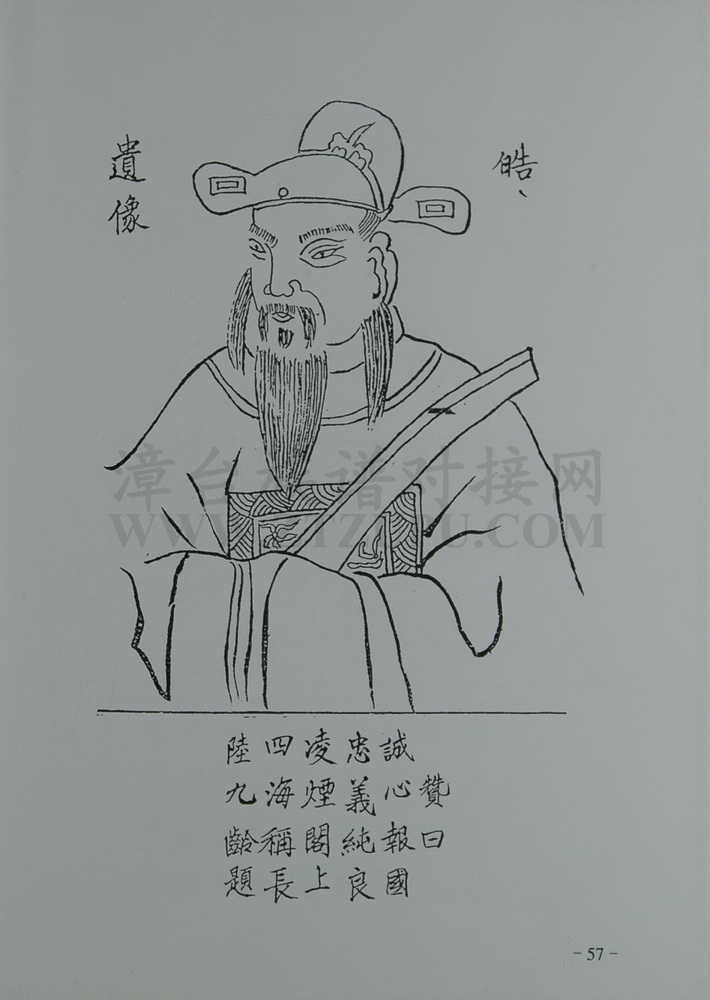 皓、
遺像
贊曰
誠心報國
忠義純良
凌煙閣上
四海稱長
陸九齡題
漳台族谱对接网
- 57 -